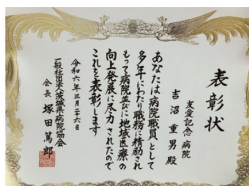 表彰状
友愛記念病院
吉沼重男殿
あなたは病院職員として
多年にわたり職務に精励され
もって病院並びに地域医療の
向上発展に尽力されたので
これを表彰します
令和六年三月二十六日
一般社団法人茨城県病院協会
会長 塚田篤郎